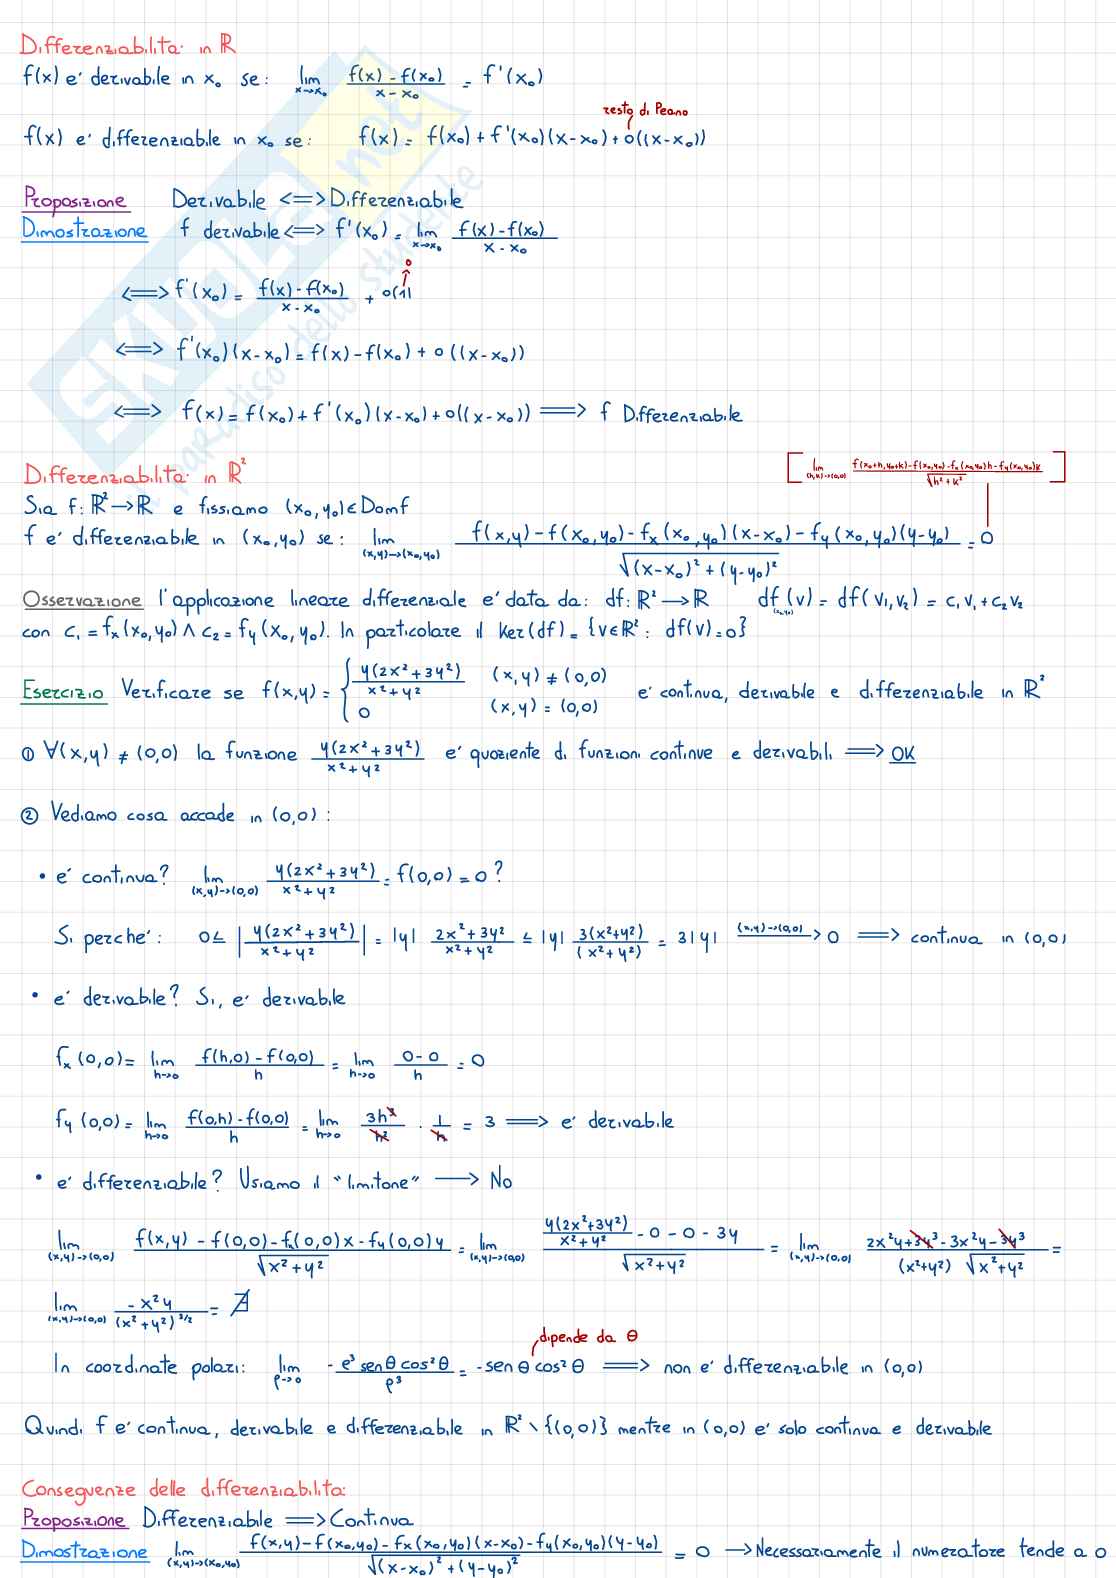 Differenziabilità in ℝ
f(x) e' derivabile in x₀ se: lim x→x₀ (f(x) - f(x₀))/(x - x₀) = f'(x₀)
resto di Peano
f(x) e' differenziabile in x₀ se: f(x) = f(x₀) + f'(x₀)(x-x₀) + o((x-x₀))
Proposizione Derivabile <=> Differenziabile
Dimostrazione f derivabile <=> f'(x₀) = lim x→x₀ (f(x) - f(x₀))/(x - x₀)
0
<=> f'(x₀) = (f(x) - f(x₀))/(x - x₀) + o(1)
<=> f'(x₀)(x-x₀) = f(x) - f(x₀) + o((x-x₀))
<=> f(x) = f(x₀) + f'(x₀)(x-x₀) + o((x-x₀)) => f Differenziabile
Differenziabilità in ℝ²
[lim (h,k)→(0,0) (f(x₀+h,y₀+k) - f(x₀,y₀) - fₓ(x₀,y₀)h - f_y(x₀,y₀)k)/√(h²+k²)]
Sia f: ℝ² → ℝ e fissiamo (x₀,y₀) ∈ Dom f
f e' differenziabile in (x₀,y₀) se: lim (x,y)→(x₀,y₀) (f(x,y) - f(x₀,y₀) - fₓ(x₀,y₀)(x-x₀) - f_y(x₀,y₀)(y-y₀))/√((x-x₀)² + (y-y₀)²) = 0
Osservazione l'applicazione lineare differenziale e' data da: df: ℝ² → ℝ df(x₀,y₀)(v) = df(v₁,v₂) = c₁v₁ + c₂v₂
con c₁ = fₓ(x₀,y₀) ∧ c₂ = f_y(x₀,y₀). In particolare il Ker(df) = {v∈ℝ² : df(v) = 0}
Esercizio Verificare se f(x,y) = { y(2x²+3y²)/(x²+y²) (x,y) ≠ (0,0) e' continua, derivabile e differenziabile in ℝ²
0 (x,y) = (0,0)
① ∀(x,y) ≠ (0,0) la funzione y(2x²+3y²)/(x²+y²) e' quoziente di funzioni continue e derivabili => OK
② Vediamo cosa accade in (0,0) :
• e' continua? lim (x,y)→(0,0) y(2x²+3y²)/(x²+y²) = f(0,0) = 0 ?
Si perche': 0 ≤ |y(2x²+3y²)/(x²+y²)| = |y| (2x²+3y²)/(x²+y²) ≤ |y| 3(x²+y²)/(x²+y²) = 3|y| (x,y)→(0,0) → 0 => continua in (0,0)
• e' derivabile? Si, e' derivabile
fₓ(0,0) = lim h→0 (f(h,0) - f(0,0))/h = lim h→0 (0-0)/h = 0
f_y(0,0) = lim h→0 (f(0,h) - f(0,0))/h = lim h→0 3h³/h² · 1/h = 3 => e' derivabile
• e' differenziabile? Usiamo il "limitone" → No
lim (x,y)→(0,0) (f(x,y) - f(0,0) - fₓ(0,0)x - f_y(0,0)y)/√(x²+y²) = lim (x,y)→(0,0) (y(2x²+3y²)/(x²+y²) - 0 - 0 - 3y)/√(x²+y²) = lim (x,y)→(0,0) (2x²y + 3y³ - 3x²y - 3y³)/((x²+y²)√(x²+y²)) =
lim (x,y)→(0,0) -x²y/(x²+y²)^(3/2) = ∄
dipende da θ
In coordinate polari: lim ρ→0 - ρ³ sen θ cos² θ/ρ³ = - sen θ cos² θ => non e' differenziabile in (0,0)
Quindi f e' continua, derivabile e differenziabile in ℝ² \ {(0,0)} mentre in (0,0) e' solo continua e derivabile
Conseguenze delle differenziabilità:
Proposizione Differenziabile => Continua
Dimostrazione lim (x,y)→(x₀,y₀) (f(x,y) - f(x₀,y₀) - fₓ(x₀,y₀)(x-x₀) - f_y(x₀,y₀)(y-y₀))/√((x-x₀)² + (y-y₀)²) = 0 → Necessariamente il numeratore tende a 0
SKUOLA.net
il paradiso dello studente